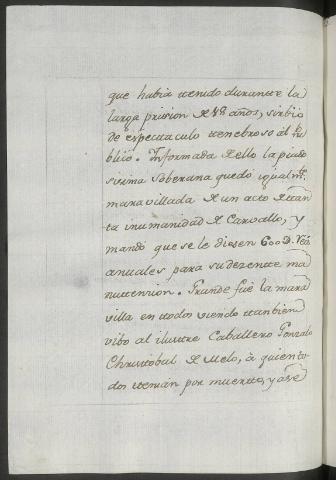 que habia tenido durante la
larga prision de 18 años, sirbio
de espectaculo tenebroso al pu
blico. Informada de ello la piado
sisima Soberana quedó igualmte.
maravillada de un acto de tan
ta inumanidad de Carvallo, y
mandó que se le diesen 600 D. Res
anuales para su dezente ma
nutension. Grande fue la mara
villa en todos viendo tanbien
vibo al ilustre Caballero Gonzalo
Christobal de Melo, à quien to
dos tenian por muerto, y